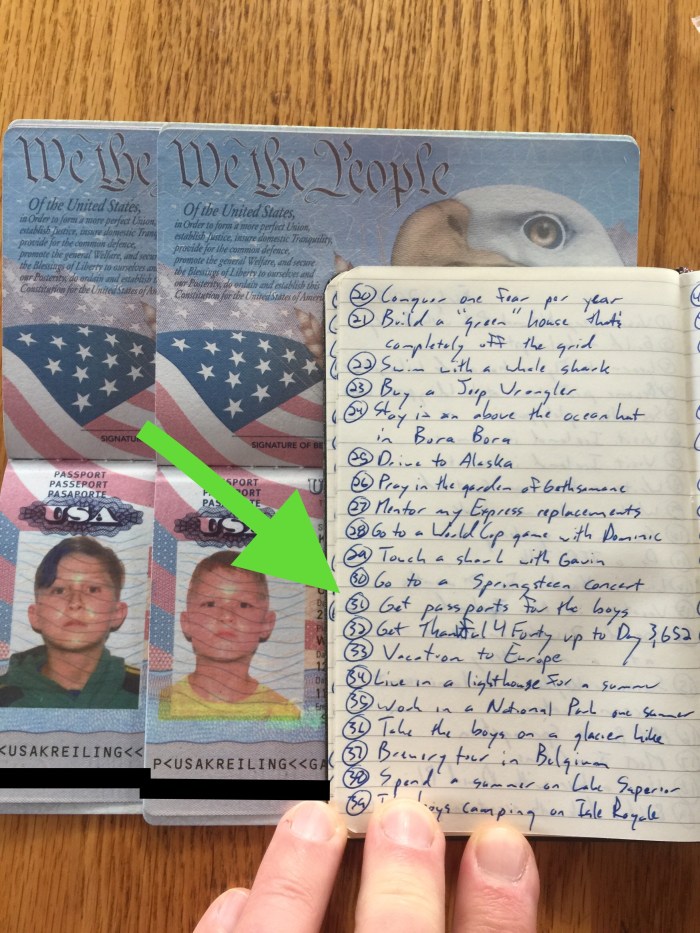 We the
Of the United States,
in Order to form a more perfect Union,
establish Justice, insure domestic Tranq
provide for the common defence,
promote the general Welfare, and secure
the Blessings of Liberty to ourselves and
our Posterity, do ordain and establish this
Constitution for the United States of Am
SIGNATU
PASSPORT
PASSEPORT
PASAPORTE
USA
<USAKREILING<<
We the People
Of the United States,
in Order to form a more perfect Union,
establish Justice, insure domestic Tranquility,
provide for the common defence,
promote the general Welfare, and secure
the Blessings of Liberty to ourselves and
our Posterity, do ordain and establish this
Constitution for the United States of Amer
SIGNATURE OF BE
PORT
PORT
PORTE
USA
P<USAKREILING<<GA
20 Conquer one fear per year
21 Build a "green" house that's
completely off the grid
22 Swim with a whale shark
23 Buy a Jeep Wrangler
24 Stay in an above the ocean hut
in Bora Bora
25 Drive to Alaska
26 Pray in the garden of Gethsemane
27 Mentor my Express replacements
28 Go to a World Cup game with Dominic
29 Touch a shark with Gavin
30 Go to a Springsteen concert
31 Get passports for the boys
32 Get Thankful 4 Forty up to Day 3,652
33 Vacation to Europe
34 Live in a lighthouse for a summer
35 Work in a National Park one summer
36 Take the boys on a glacier hike
37 Brewery tour in Belgium
38 Spend a summer on Lake Superior
39 boys camping on Isle Royale